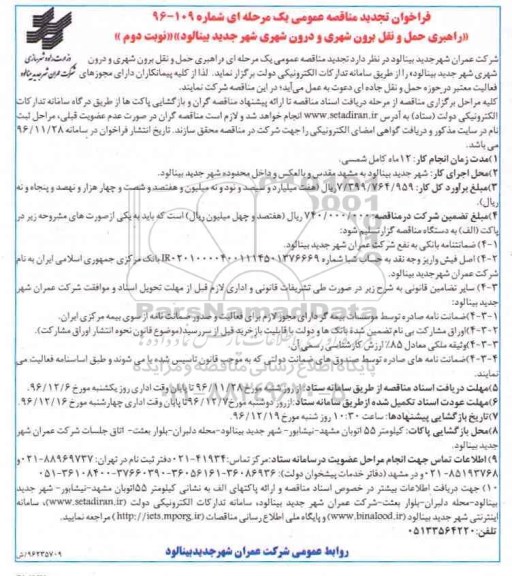 فراخوان تجدید مناقصه عمومی یک مرحله ای شماره ۱۰۹-۹۶
«راهبری حمل و نقل برون شهری و درون شهری شهر جدید بینالود»«نوبت دوم»
وزارت راه و شهرسازی
شرکت عمران شهر جدید بینالود
شرکت عمران شهرجدید بینالود در نظر دارد تجدید مناقصه عمومی یک مرحله ای «راهبری حمل و نقل برون شهری و درون
شهری شهر جدید بینالود» را از طریق سامانه تدارکات الکترونیکی دولت برگزار نماید. لذا از کلیه پیمانکاران دارای مجوزهای
فعالیت معتبر در حوزه حمل و نقل جاده ای دعوت به عمل می‌آید؛ در این مناقصه شرکت نمایند.
کلیه مراحل برگزاری مناقصه از مرحله دریافت اسناد مناقصه تا ارائه پیشنهاد مناقصه گران و بازگشایی پاکت ها از طریق درگاه سامانه تدارکات
الکترونیکی دولت (ستاد) به آدرس www.setadiran.ir انجام خواهد شد و لازم است مناقصه گران در صورت عدم عضویت قبلی، مراحل ثبت
نام در سایت مذکور و دریافت گواهی امضای الکترونیکی را جهت شرکت در مناقصه محقق سازند. تاریخ انتشار فراخوان در سامانه ۹۶/۱۱/۲۸
می باشد.
۱)مدت زمان انجام کار: ۱۲ماه کامل شمسی.
۲)محل اجرای کار: شهر جدید بینالود به مشهد مقدس و بالعکس و داخل محدوده شهر جدید بینالود.
۳)مبلغ برآورد کل کار: ۷/۳۹۹/۷۶۴/۹۵۹ ریال (هفت میلیارد و سیصد و نود و نه میلیون و هفتصد و شصت و چهار هزار و نهصد و پنجاه و نه
ریال).
۴)مبلغ تضمین شرکت در مناقصه: ۷۴۰/۰۰۰/۰۰۰ ریال (هفتصد و چهل میلیون ریال) است که باید به یکی از صورت های مشروحه زیر در
پاکت (الف) به دستگاه مناقصه گزار تسلیم شود:
۴-۱) ضمانتنامه بانکی به نفع شرکت عمران شهر جدید بینالود.
۴-۲) اصل فیش واریز وجه نقد به حساب شبا شماره IR۰۲۰۱۰۰۰۰۴۰۰۱۱۱۴۵۰۱۳۷۶۶۶۹ بانک مرکزی جمهوری اسلامی ایران به نام
شرکت عمران شهر جدید بینالود.
۴-۳) سایر تضامین قانونی به شرح زیر در صورت طی تشریفات قانونی و اداری لازم قبل از مهلت تحویل اسناد و موافقت شرکت عمران شهر
جدید بینالود:
۴-۳-۱)ضمانت نامه صادره توسط موسسات بیمه گر دارای مجوز لازم برای فعالیت و صدور ضمانت نامه از سوی بیمه مرکزی ایران.
۴-۳-۲)اوراق مشارکت بی نام تضمین شده بانک ها و دولت با قابلیت بازخرید قبل از سررسید(موضوع قانون نحوه انتشار اوراق مشارکت).
۴-۳-۳)وثیقه ملکی معادل ۸۵٪ ارزش کارشناسی رسمی آن
۴-۳-۴)ضمانت نامه های صادره توسط صندوق های ضمانت دولتی که به موجب قانون تاسیس شده یا می شوند و طبق اساسنامه فعالیت می
نمایند.
۵)مهلت دریافت اسناد مناقصه از طریق سامانه ستاد: از روز شنبه مورخ ۹۶/۱۱/۲۸ تا پایان وقت اداری روز یکشنبه مورخ ۹۶/۱۲/۶.
۶)مهلت عودت اسناد تکمیل شده از طریق سامانه ستاد: از روز دوشنبه مورخ ۹۶/۱۲/۷ تا پایان وقت اداری چهارشنبه مورخ ۹۶/۱۲/۱۶.
۷)تاریخ بازگشایی پیشنهادها: ساعت ۱۰:۳۰ روز شنبه مورخ ۹۶/۱۲/۱۹
۸)محل بازگشایی پاکات: کیلومتر ۵۵ اتوبان مشهد-نیشابور- شهر جدید بینالود-محله دلبران-بلوار بعثت- اتاق جلسات شرکت عمران شهر
جدید بینالود.
۹) اطلاعات تماس جهت انجام مراحل عضویت در سامانه ستاد: مرکز تماس: ۴۱۹۳۴-۰۲۱ دفتر ثبت نام در تهران: ۸۸۹۶۹۷۳۷-۰۲۱ و
۸۵۱۹۳۷۶۸-۰۲۱ و در مشهد (دفاتر خدمات پیشخوان دولت): ۳۶۰۸۶۹۳۶-۳۶۰۵۶۱۶۱-۳۷۶۶۰۳۹۰-۳۶۱۰۸۴۰۰-۰۵۱
۱۰) جهت دریافت اطلاعات بیشتر در خصوص اسناد مناقصه و ارائه پاکتهای الف به نشانی کیلومتر ۵۵اتوبان مشهد-نیشابور- شهر جدید
بینالود-محله دلبران-بلوار بعثت-شرکت عمران شهر جدید بینالود، سامانه تدارکات الکترونیکی دولت (www.setadiran.ir)، سامانه
اینترنتی شهر جدید بینالود (www.binalood.ir) و پایگاه ملی اطلاع رسانی مناقصات (http://iets.mporg.ir) مراجعه نمایید.
تلفن: ۰۵۱۳۳۵۶۴۲۲۰
روابط عمومی شرکت عمران شهر جدید بینالود
۹۶۲۳۵۷۰۹/ش
ParsNamadData
پایگاه اطلاع رسانی مناقصه و مزایده